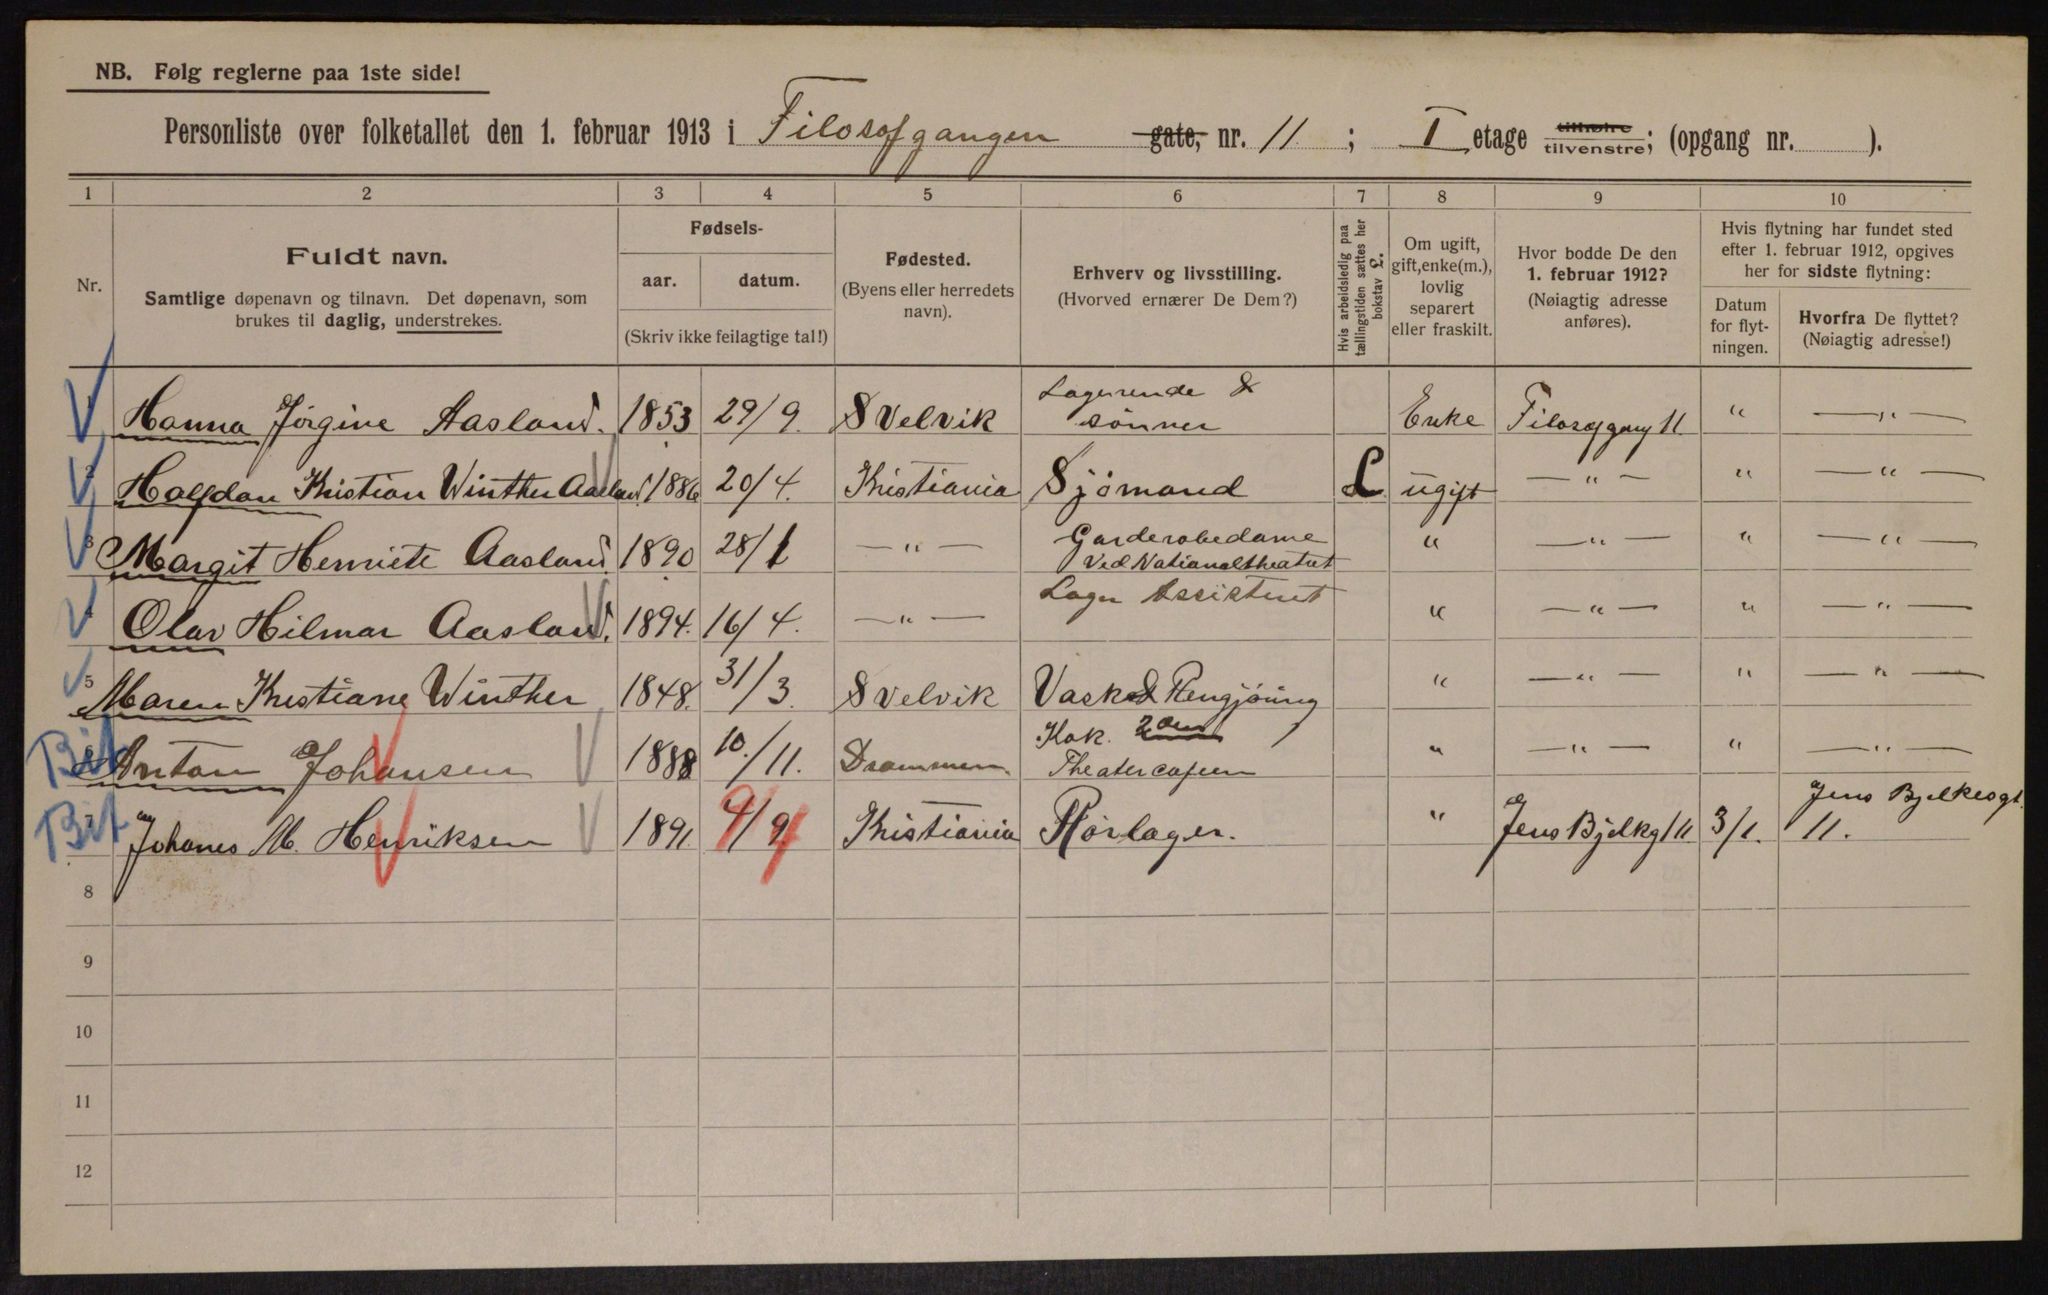 NB. Følg reglerne paa 1ste side!
Personliste over folketallet den 1. februar 1913 i Filosofgangen gate, nr. 11 ; I etage tilhøire tilvenstre; (opgang nr. ).
1 2 3 4 5 6 7 8 9 10
Nr.
Fuldt navn.
Samtlige døpenavn og tilnavn. Det døpenavn, som
brukes til daglig, understrekes.
Fødsels-
aar. datum.
(Skriv ikke feilagtige tal!)
Fødested.
(Byens eller herredets
navn).
Erhverv og livsstilling.
(Hvorved ernærer De Dem?)
Hvis arbeidsledig paa
tællingstiden sættes her
bokstav L.
Om ugift,
gift, enke(m.),
lovlig
separert
eller fraskilt.
Hvor bodde De den
1. februar 1912?
(Nøiagtig adresse
anføres).
Hvis flytning har fundet sted
efter 1. februar 1912, opgives
her for sidste flytning:
Datum
for flyt-
ningen.
Hvorfra De flyttet?
(Nøiagtig adresse!)
1 Hanna Jørgine Aasland. 1853 29/9. Svelvik Logerende & sønner Enke Filosofgang 11. " — " —
2 Halfdan Kristian Winther Aasland. 1886 20/4. Kristiania Sjømand L ugift — " — " — " —
3 Margit Henriete Aasland. 1890 28/1 — " — Garderobedame ved Nationaltheatret " — " — " — " —
4 Olav Hilmar Aasland. 1894. 16/4. — " — Lager Assistent " — " — " — " —
5 Maren Kristiane Winther 1848. 31/3. Svelvik Vask & Rengjøring " — " — " — " —
Bit 6 Anton Johansen 1888 10./11. Drammen. Kok. Theatercafeen " — " — " — " —
Bit 7 Johanes M. Henriksen 1891. 4/9 Kristiania Rørlager. " Jens Bjelkg 11. 3/1. Jens Bjelkesgt. 11.
8
9
10
11
12